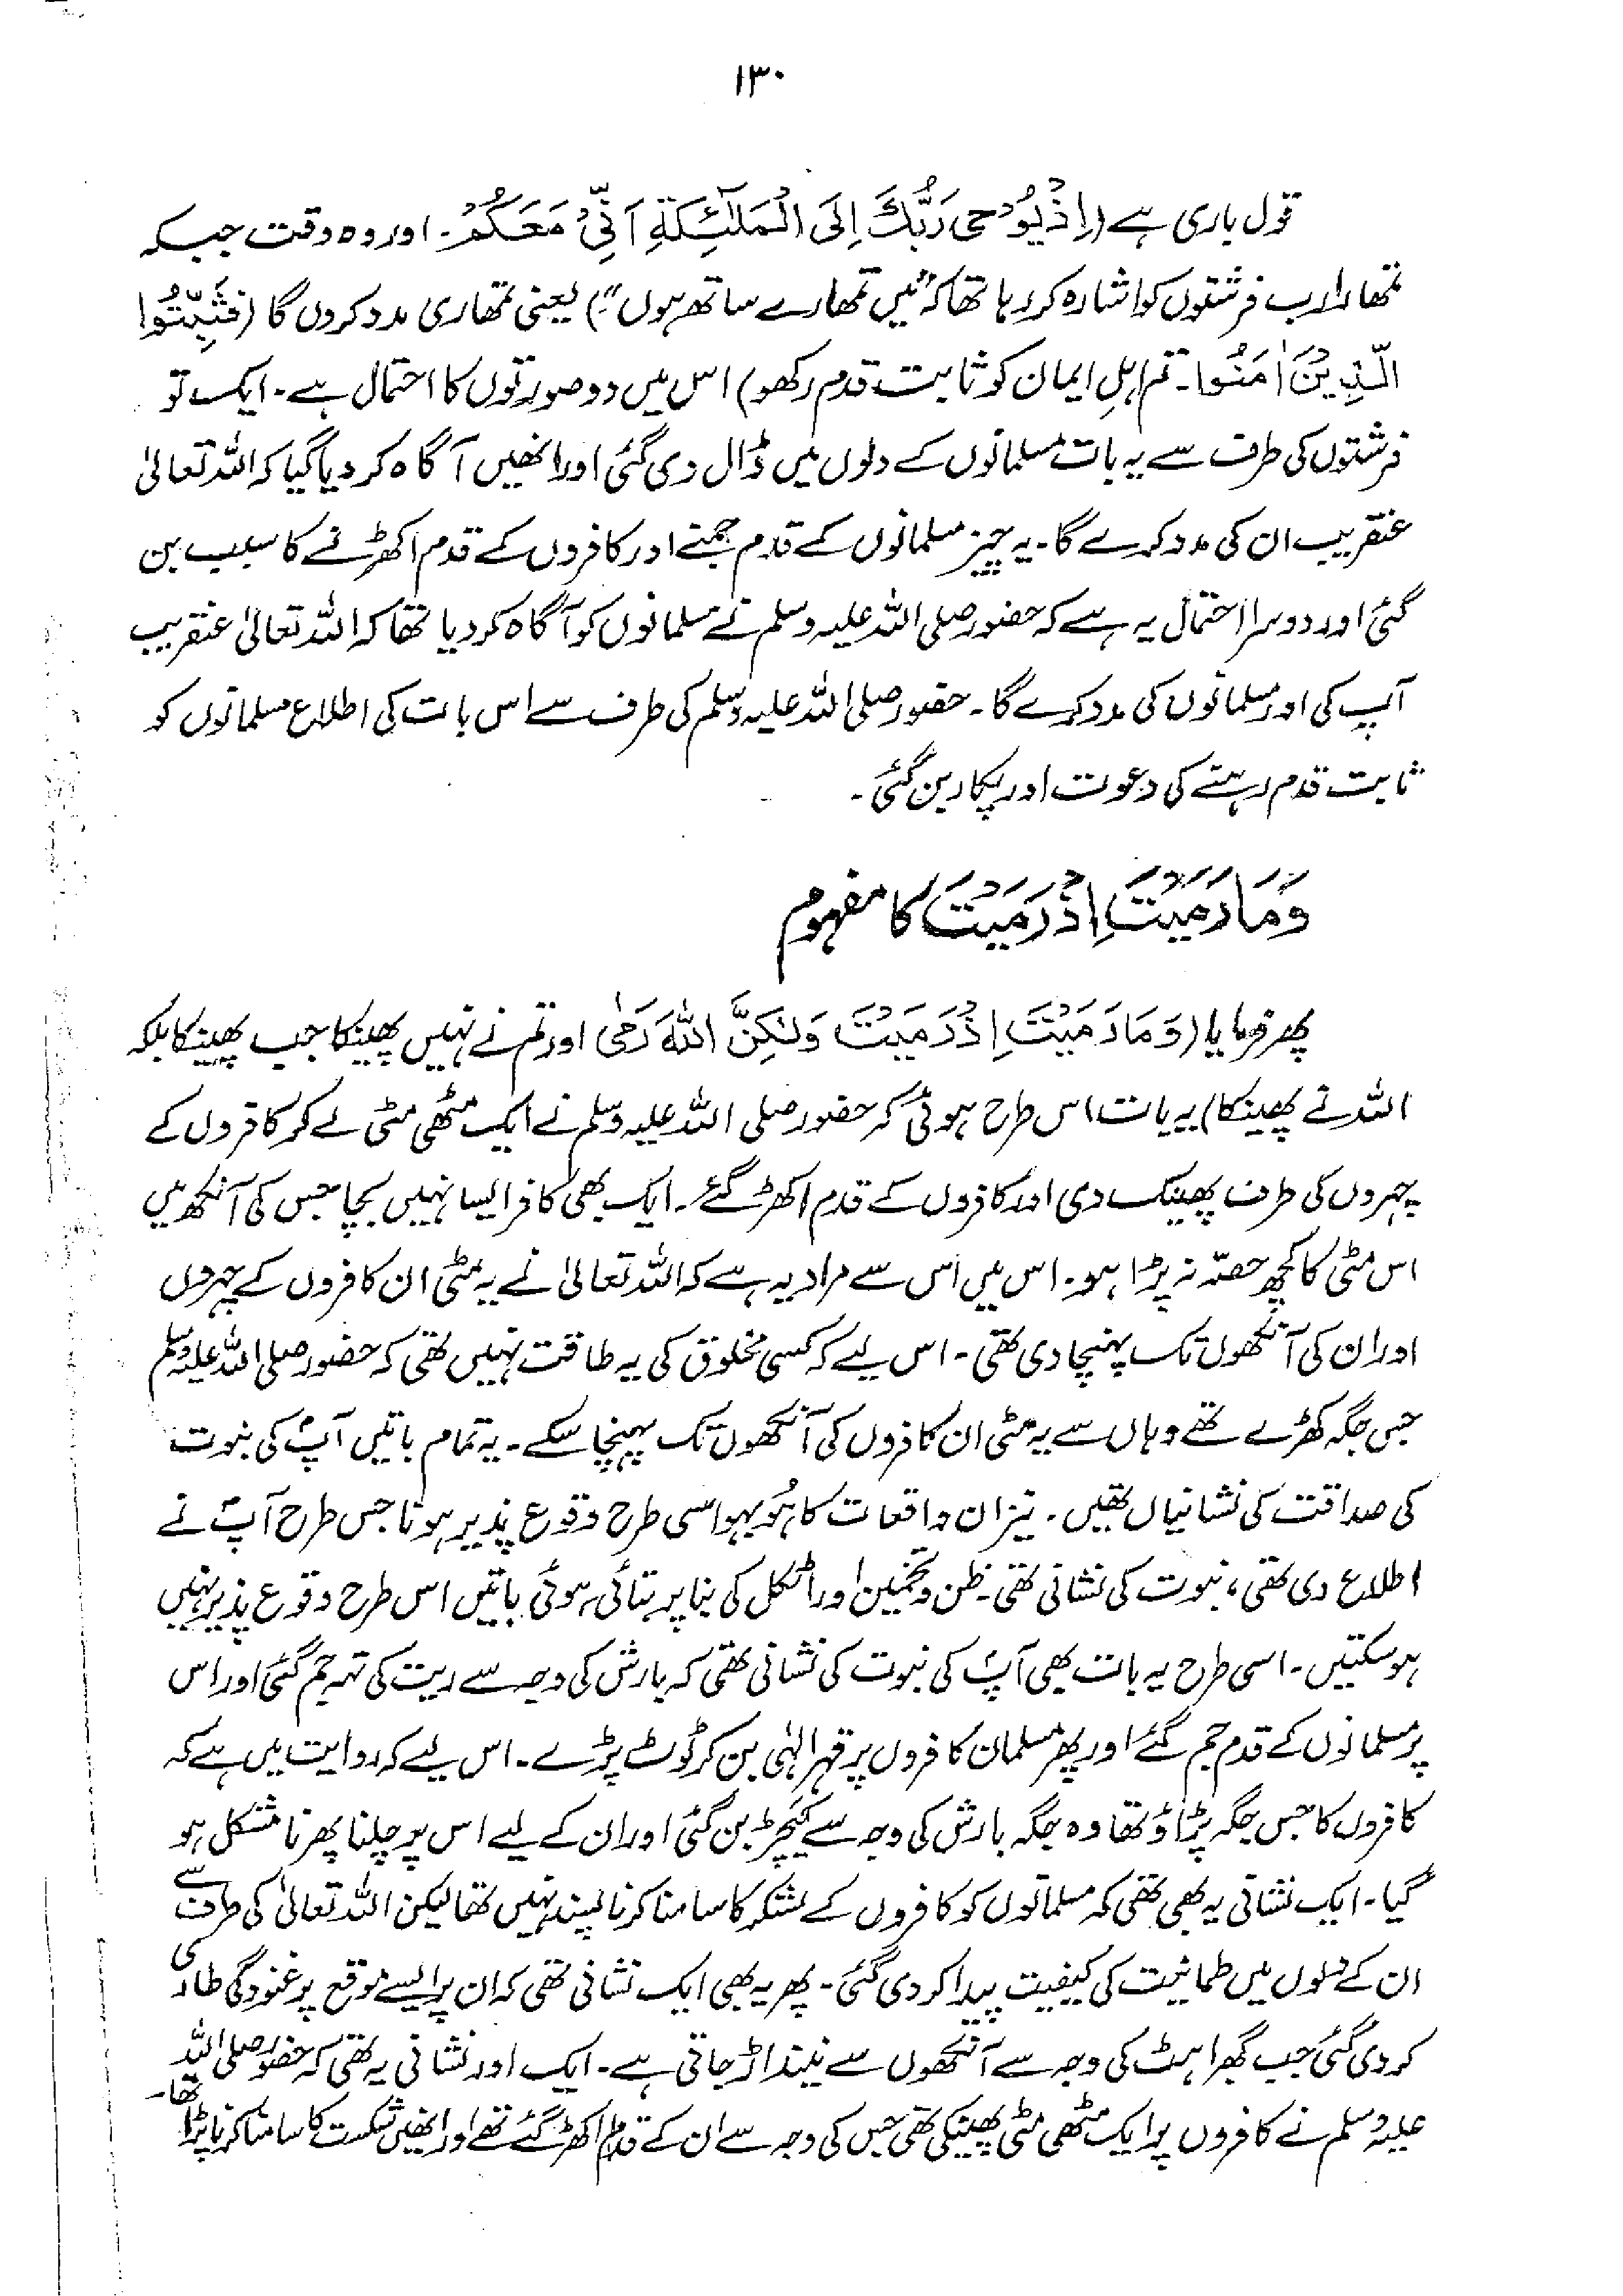 ۱۳۰
قول باری ہے (اِذْ یُوْحِی رَبُّکَ اِلَی الْمَلٰٓئِکَۃِ اَنِّیْ مَعَکُمْ۔ اور وہ وقت جبکہ
تمھارا رب فرشتوں کو اشارہ کر رہا تھا کہ "میں تمھارے ساتھ ہوں"۔) یعنی تمھاری مدد کروں گا (فَثَبِّتُوا
الَّذِیْنَ اٰمَنُوا۔ تم اہلِ ایمان کو ثابت قدم رکھو) اس میں دو صورتوں کا احتمال ہے۔ ایک تو
فرشتوں کی طرف سے یہ بات مسلمانوں کے دلوں میں ڈال دی گئی اور انھیں آگاہ کر دیا گیا کہ اللہ تعالیٰ
عنقریب ان کی مدد کرے گا۔ یہ چیز مسلمانوں کے قدم جمنے اور کافروں کے قدم اکھڑنے کا سبب بن
گئی اور دوسرا احتمال یہ ہے کہ حضور صلی اللہ علیہ وسلم نے مسلمانوں کو آگاہ کر دیا تھا کہ اللہ تعالیٰ عنقریب
آپ کی اور مسلمانوں کی مدد کرے گا۔ حضور صلی اللہ علیہ وسلم کی طرف سے اس بات کی اطلاع مسلمانوں کو
ثابت قدم رہنے کی دعوت اور پکار بن گئی۔
وَمَا رَمَیْتَ اِذْ رَمَیْتَ کا مفہوم
پھر فرمایا (وَمَا رَمَیْتَ اِذْ رَمَیْتَ وَلٰکِنَّ اللہَ رَمٰی اور تم نے نہیں پھینکا جب پھینکا بلکہ
اللہ نے پھینکا) یہ بات اس طرح ہوئی کہ حضور صلی اللہ علیہ وسلم نے ایک مٹھی مٹی لے کر کافروں کے
چہروں کی طرف پھینک دی اور کافروں کے قدم اکھڑ گئے۔ ایک بھی کافر ایسا نہیں بچا جس کی آنکھ میں
اس مٹی کا کچھ حصّہ نہ پڑا ہو۔ اس میں اس سے مراد یہ ہے کہ اللہ تعالیٰ نے یہ مٹی ان کافروں کے چہروں
اور ان کی آنکھوں تک پہنچا دی تھی۔ اس لیے کہ کسی مخلوق کی یہ طاقت نہیں تھی کہ حضور صلی اللہ علیہ وسلم
جس جگہ کھڑے تھے وہاں سے یہ مٹی ان کافروں کی آنکھوں تک پہنچا سکے۔ یہ تمام باتیں آپؐ کی نبوت
کی صداقت کی نشانیاں تھیں۔ نیز ان واقعات کا ہُو بہو اسی طرح وقوع پذیر ہونا جس طرح آپؐ نے
اطلاع دی تھی، نبوت کی نشانی تھی۔ ظن وتخمین اور اٹکل کی بنا پر بتائی ہوئی باتیں اس طرح وقوع پذیر نہیں
ہو سکتیں۔ اسی طرح یہ بات بھی آپؐ کی نبوت کی نشانی تھی کہ بارش کی وجہ سے ریت کی تہہ جم گئی اور اس
پر مسلمانوں کے قدم جم گئے اور پھر مسلمان کافروں پر قہر الٰہی بن کر ٹوٹ پڑے۔ اس لیے کہ روایت میں ہے کہ
کافروں کا جس جگہ پڑاؤ تھا وہ جگہ بارش کی وجہ سے کیچڑ بن گئی اور ان کے لیے اس پر چلنا پھرنا مشکل ہو
گیا۔ ایک نشانی یہ بھی تھی کہ مسلمانوں کو کافروں کے لشکر کا سامنا کرنا پسند نہیں تھا لیکن اللہ تعالیٰ کی طرف سے
ان کے دلوں میں طمانیت کی کیفیت پیدا کر دی گئی۔ پھر یہ بھی ایک نشانی تھی کہ ان پر ایسے موقع پر غنودگی طاری
کر دی گئی جب گھبراہٹ کی وجہ سے آنکھوں سے نیند اڑ جاتی ہے۔ ایک اور نشانی یہ تھی کہ حضور صلی اللہ
علیہ وسلم نے کافروں پر ایک مٹھی مٹی پھینکی تھی جس کی وجہ سے ان کے قدم اکھڑ گئے تھے اور انھیں شکست کا سامنا کرنا پڑا تھا۔